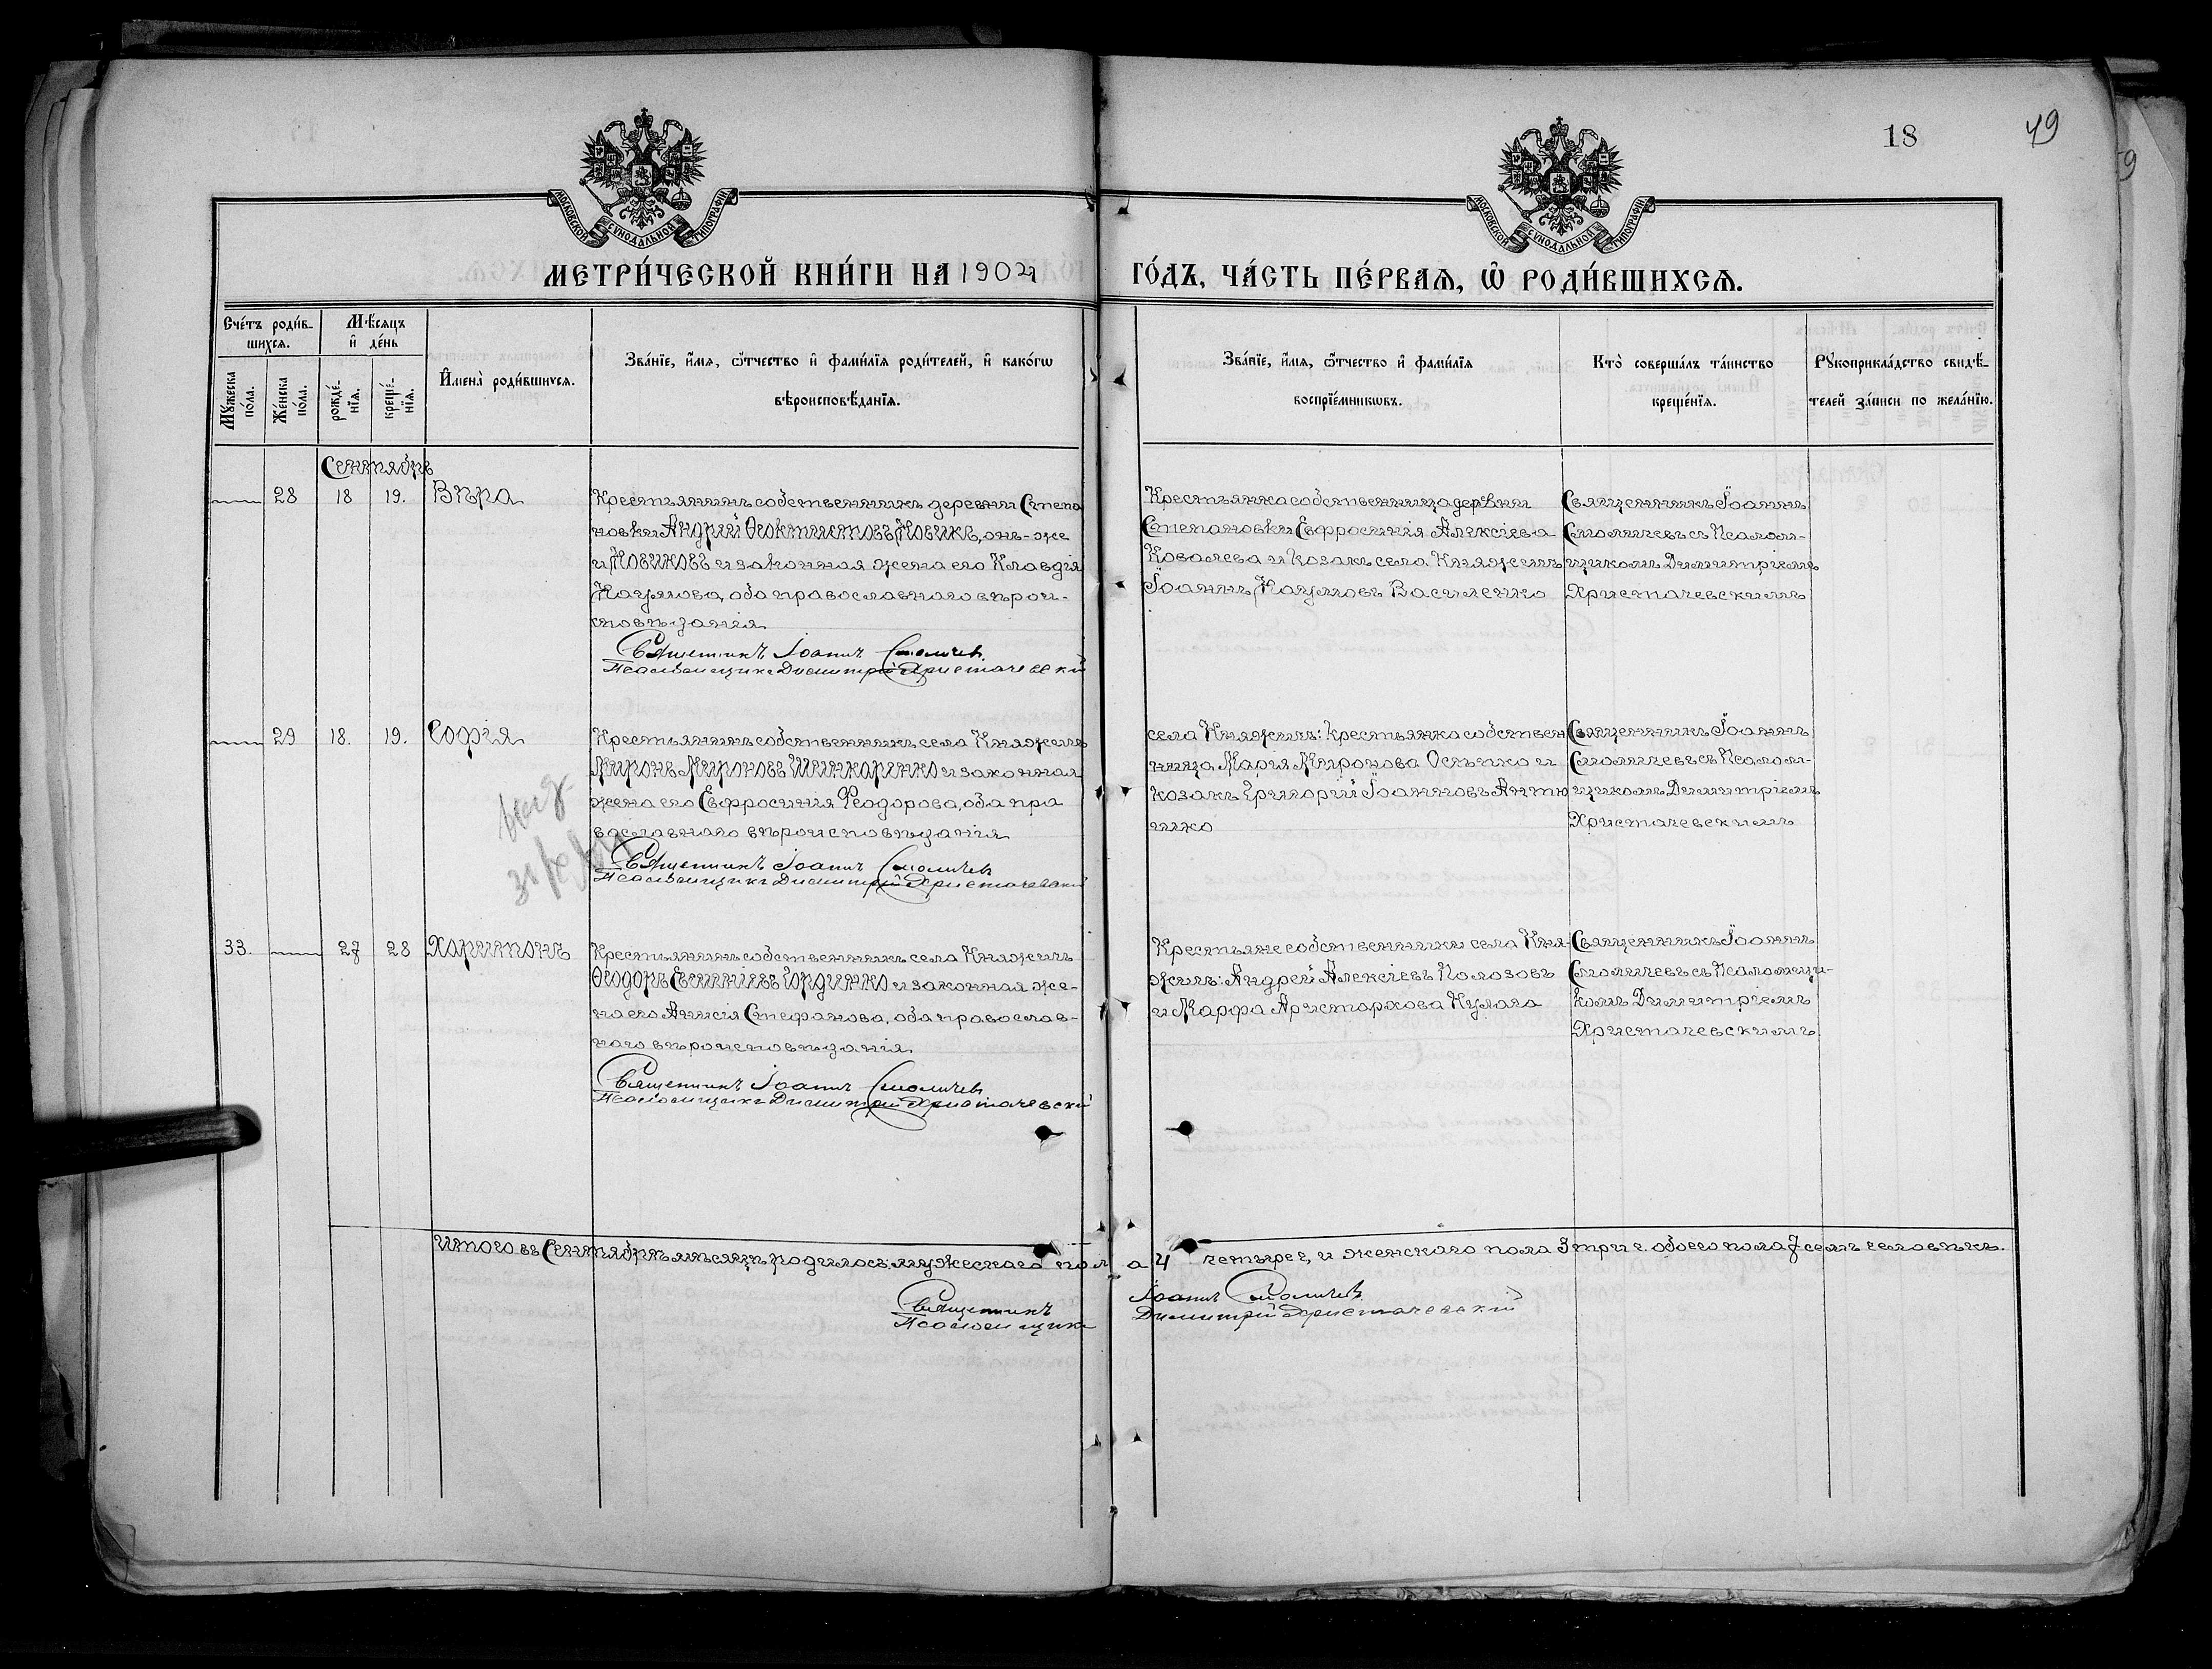 18
49
МОСКОВСКОЙ СѴНОДАЛЬНОЙ ТИПОГРАФІИ
МОСКОВСКОЙ СѴНОДАЛЬНОЙ ТИПОГРАФІИ
МЕТРИ́ЧЕСКОЙ КНИ́ГИ НА 1904 ГО́ДЪ, ЧА́СТЬ ПЕ́РВАѦ, Ѡ҆ РОДИ́ВШИХСѦ.
Сче́тъ роди́в-
шихсѧ.
Мꙋ́жеска по́ла.
Же́нска по́ла.
Мѣ́сѧцъ
и҆ де́нь
рожде́-
нїѧ.
креще́-
нїѧ.
И҆мена̀ роди́вшихсѧ.
Зва́нїе, и҆́мѧ, ѻ҆́тчество и҆ фамѝлїѧ роди́телей, и҆ како́гѡ
вѣроисповѣ́данїѧ.
Зва́нїе, и҆́мѧ, ѻ҆́тчество и҆ фамѝлїѧ
воспрїе́мникѡвъ.
Кто̀ соверша́лъ та́инство
креще́нїѧ.
Рꙋкоприкла́дство свидѣ́-
телей за́писи по жела́нїю.
Сентябрь
28 18 19. Вѣра
Крестьянинъ собственникъ деревни Степа
новки Андрей Ѳеоктистовъ Новикъ, онъ-же
и Новиковъ и законная жена его Клавдія
Наумова, оба православнаго вѣрои-
сповѣданія
Священникъ Іоаннъ Смоличевъ
Псаломщикъ Димитрій Христачевскій
Крестьянка собственница деревни
Степановки Евфросинія Алексіева
Ковалева и козакъ села Княжичъ
Іоаннъ Наумовъ Василенко
Священникъ Іоаннъ
Смоличевъ съ Псалом-
щикомъ Димитріемъ
Христачевскимъ
29 18. 19. Софія
Крестьянинъ собственникъ села Княжичъ
Миронъ Мироновъ Шинкаренко и законная
жена его Евфросинія Ѳеодорова, оба пра
вославнаго вѣроисповѣданія
Священникъ Іоаннъ Смоличевъ
Псаломщикъ Димитрій Христачевскій
села Княжичъ: крестьянка собствен
ница Марія Миронова Осѣтко и
козакъ Григорій Іоанновъ Антю
шко
Священникъ Іоаннъ
Смоличевъ съ Псалом-
щикомъ Димитріемъ
Христачевскимъ
33. 27 28 Харитонъ
Крестьянинъ собственникъ села Княжичъ
Ѳеодоръ Гординко и законная же-
на его Анисія Стефанова, оба православ-
наго вѣроисповѣданія.
Священникъ Іоаннъ Смоличевъ
Псаломщикъ Димитрій Христачевскій
Крестьяне собственники села Кня-
жичъ: Андрей Алексіевъ Полозовъ
и Марфа Аристархова Кулага
Священникъ Іоаннъ
Смоличевъ съ Псаломщи-
комъ Димитріемъ
Христачевскимъ.
Итого въ Сентябрѣ мѣсяцѣ родилось: мужескаго пола 4 четыре, и женскаго пола 3 три, обоего пола 7 семь человѣкъ.
Священникъ Іоаннъ Смоличевъ
Псаломщикъ Димитрій Христачевскій